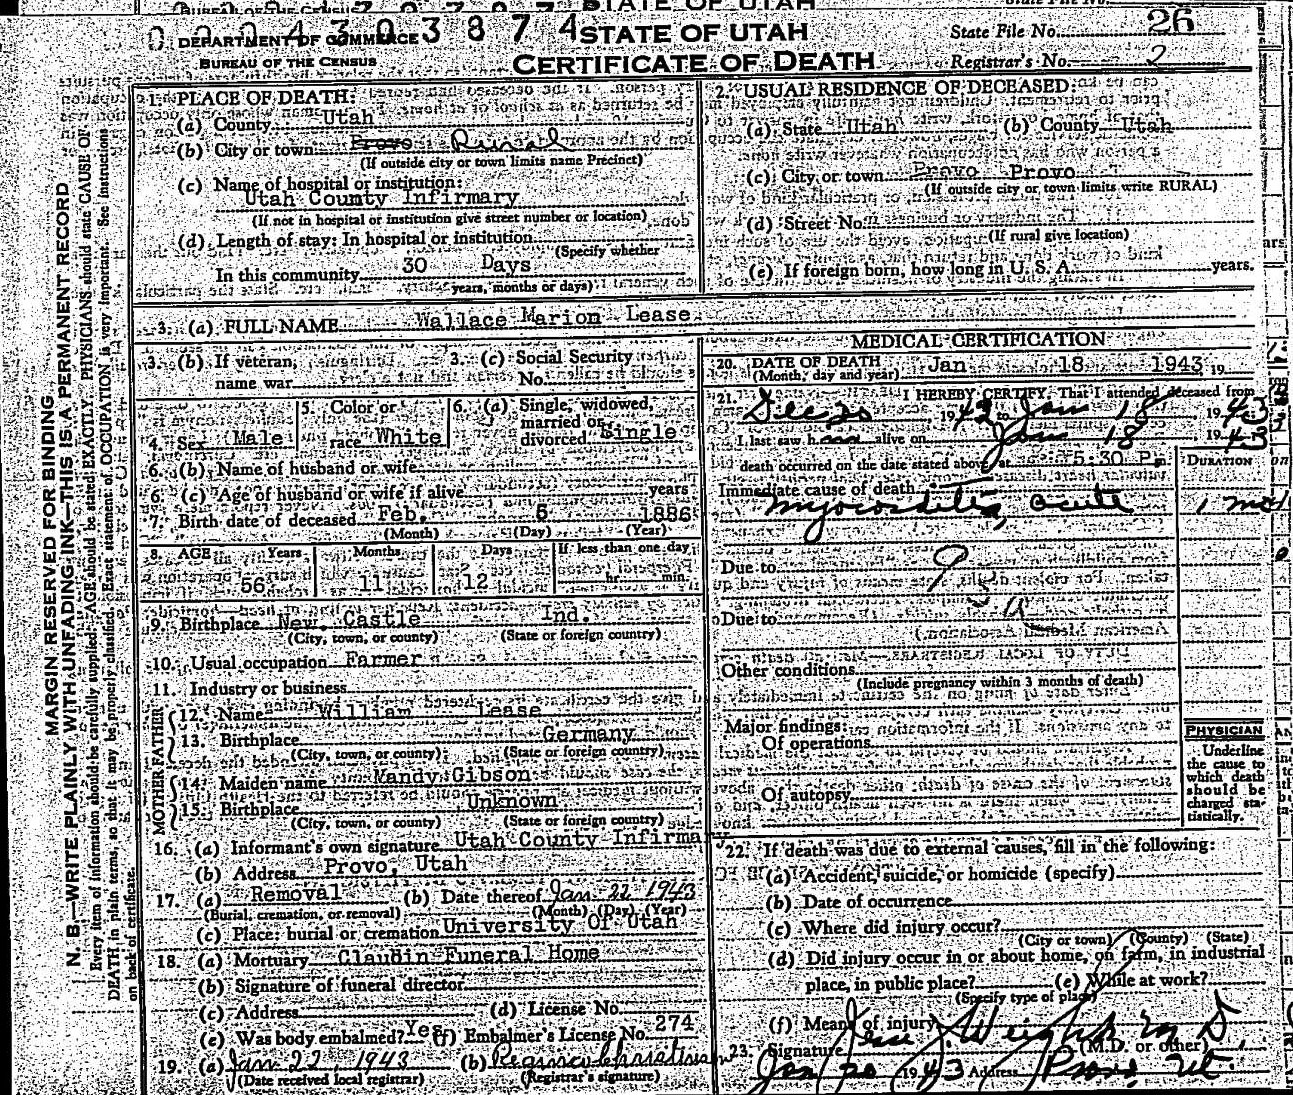 STATE OF UTAH
0 0 0 4 3 0 3 8 7 4
DEPARTMENT OF COMMERCE
BUREAU OF THE CENSUS
STATE OF UTAH
CERTIFICATE OF DEATH
State File No. 26
Registrar's No. 2
MARGIN RESERVED FOR BINDING
N. B.—WRITE PLAINLY WITH UNFADING INK—THIS IS A PERMANENT RECORD
Every item of information should be carefully supplied. AGE should be stated EXACTLY. PHYSICIANS should state CAUSE OF
DEATH in plain terms, so that it may be properly classified. Exact statement of OCCUPATION is very important. See instructions
on back of certificate.
1. PLACE OF DEATH:
(a) County Utah
(b) City or town Provo Rural
(If outside city or town limits name Precinct)
(c) Name of hospital or institution:
Utah County Infirmary
(If not in hospital or institution give street number or location)
(d) Length of stay: In hospital or institution
(Specify whether
In this community 30 Days
years, months or days)
2. USUAL RESIDENCE OF DECEASED:
(a) State Utah (b) County Utah
(c) City or town Provo Provo
(If outside city or town limits write RURAL)
(d) Street No.
(If rural give location)
(e) If foreign born, how long in U. S. A. years.
3. (a) FULL NAME Wallace Marion Lease
3. (b) If veteran, name war
3. (c) Social Security No.
4. Sex Male
5. Color or race White
6. (a) Single, widowed, married or divorced Single
6. (b) Name of husband or wife
6. (c) Age of husband or wife if alive years
7. Birth date of deceased Feb. 6 1886
(Month) (Day) (Year)
8. AGE Years Months Days If less than one day
56 11 12 hr. min.
9. Birthplace New Castle Ind.
(City, town, or county) (State or foreign country)
10. Usual occupation Farmer
11. Industry or business
FATHER
12. Name William Lease
13. Birthplace Germany
(City, town, or county) (State or foreign country)
MOTHER
14. Maiden name Mandy Gibson
15. Birthplace Unknown
(City, town, or county) (State or foreign country)
16. (a) Informant's own signature Utah County Infirmary
(b) Address Provo, Utah
17. (a) Removal (b) Date thereof Jan 22 1943
(Burial, cremation, or removal) (Month) (Day) (Year)
(c) Place: burial or cremation University Of Utah
18. (a) Mortuary Claudin Funeral Home
(b) Signature of funeral director
(c) Address (d) License No.
(e) Was body embalmed? Yes (f) Embalmer's License No. 274
19. (a) Jan 22 1943 (b) Christensen
(Date received local registrar) (Registrar's signature)
MEDICAL CERTIFICATION
20. DATE OF DEATH Jan 18 1943 19
(Month, day and year)
21. I HEREBY CERTIFY, That I attended deceased from
Dec 20 1942 to Jan 18 1943
I last saw h alive on Jan 18 1943
death occurred on the date stated above, at 5:30 P m.
DURATION
Immediate cause of death
myocarditis, acute 1 mo
Due to
Due to
Other conditions
(Include pregnancy within 3 months of death)
Major findings:
Of operations
Of autopsy
PHYSICIAN
Underline
the cause to
which death
should be
charged sta-
tistically.
22. If death was due to external causes, fill in the following:
(a) Accident, suicide, or homicide (specify)
(b) Date of occurrence
(c) Where did injury occur?
(City or town) (County) (State)
(d) Did injury occur in or about home, on farm, in industrial
place, in public place? (e) While at work?
(Specify type of place)
(f) Means of injury
23. Signature Jesse J. Weight M D
(M.D. or other)
Jan 20 1943 Address Provo, Ut.